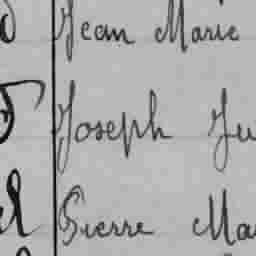 Jean Marie
Joseph Ju
Pierre Ma